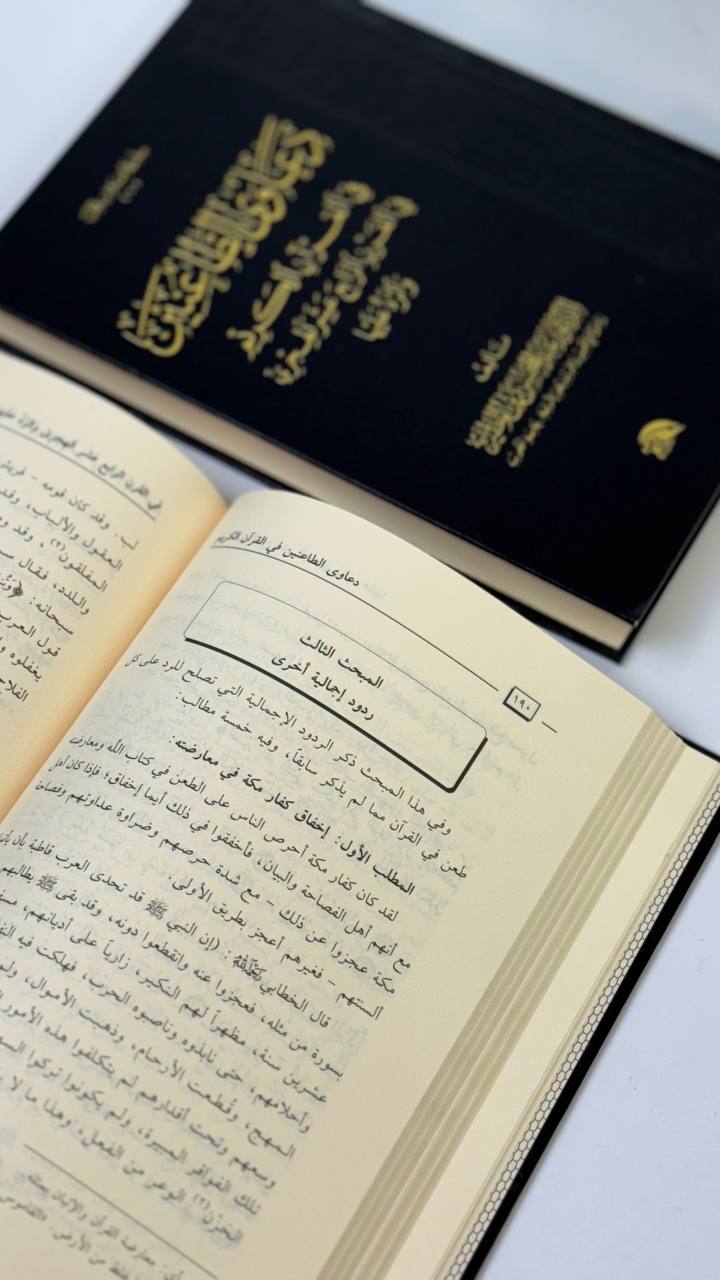 دعاوى الطاعنين
في القرآن الكريم
في القرن الرابع عشر الهجري
والرد عليها
تأليف
في القرن الرابع عشر الهجري والرد عليها
لب. وقد كان قومه - قريش
العقول والألباب، وقد
المفلقون(٢)، وقد
واللدد، فقال
سبحانه:
قول العرب
يغفلوه
الفلاح
دعاوى الطاعنين في القرآن الكريم
١٩٠
المبحث الثالث
ردود إجمالية أخرى
وفي هذا المبحث ذكر الردود الإجمالية التي تصلح للرد على كل
طعن في القرآن مما لم يذكر سابقاً، وفيه خمسة مطالب:
المطلب الأول: إخفاق كفار مكة في معارضته:
لقد كان كفار مكة أحرص الناس على الطعن في كتاب الله ومعارضته
مع أنهم أهل الفصاحة والبيان، فأخفقوا في ذلك أيما إخفاق؛ فإذا كان أهل
مكة عجزوا عن ذلك - مع شدة حرصهم وضراوة عداوتهم وفصاحة
ألسنتهم - فغيرهم أعجز بطريق الأولى.
قال الخطابي رحمه الله: (إن النبي ﷺ قد تحدى العرب قاطبة بأن يأتوا
بسورة من مثله، فعجزوا عنه وانقطعوا دونه، وقد بقي ﷺ يطالبهم
عشرين سنة، مظهراً لهم النكير، زارياً على أديانهم،
وأحلامهم، حتى نابذوه وناصبوه الحرب، فهلكت فيه
المهج، وقُطعت الأرحام، وذهبت الأموال، ولو
وسعهم وتحت أقدارهم لم يتكلفوا هذه الأمور
تلك الفواقر المبيرة، ولم يكونوا تركوا
الحزن(٢) الوعر من الفعل، وهذا ما لا
معارضة القرآن والإتيان بمثله